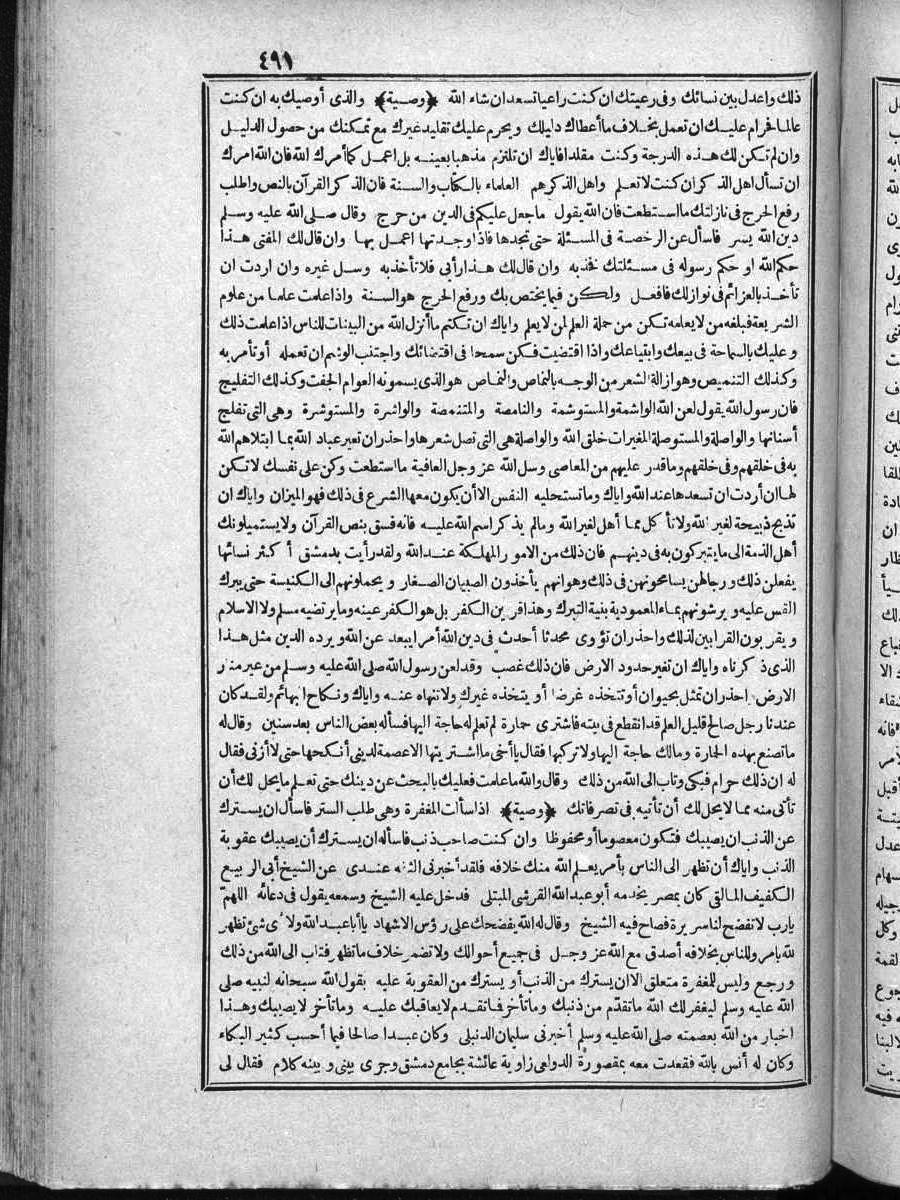 ٤٩١
ذلك واعدل بين نسائك وفى رعيتك ان كنت راعيا تسعد ان شاء الله ﴿وصية﴾ والذى أوصيك به ان كنت
عالما فحرام عليك ان تعمل بخلاف ما أعطاك دليلك ويحرم عليك تقليد غيرك مع تمكنك من حصول الدليل
وان لم تكن لك هذه الدرجة وكنت مقلدا فاياك ان تلتزم مذهبا بعينه بل اعمل كما أمرك الله فان الله امرك
ان تسأل اهل الذكر ان كنت لا تعلم واهل الذكر هم العلماء بالكتاب والسنة فان الذكر القرآن بالنص واطلب
رفع الحرج فى نازلتك ما استطعت فان الله يقول ما جعل عليكم فى الدين من حرج وقال صلى الله عليه وسلم
دين الله يسر فاسأل عن الرخصة فى المسئلة حتى تجدها فاذا وجدتها اعمل بها وان قال لك المفتى هذا
حكم الله او حكم رسوله فى مسئلتك فخذ به وان قال لك هذا رأيى فلا تأخذ به وسل غيره وان اردت ان
تأخذ بالعزائم فى نوازلك فافعل ولكن فيما يختص بك ورفع الحرج هو السنة واذا علمت علما من علوم
الشريعة فبلغه من لا يعلمه تكن من حملة العلم لمن لا يعلم واياك ان تكتم ما أنزل الله من البينات للناس اذا علمت ذلك
وعليك بالسماحة فى بيعك وابتياعك واذا اقتضيت فكن سمحا فى اقتضائك واجتنب الوشم ان تعمله أو تأمر به
وكذلك التنميص وهو ازالة الشعر من الوجه بالنماص والنماص هو الذى يسمونه العوام الجفت وكذلك التفليج
فان رسول الله يقول لعن الله الواشمة والمستوشمة والنامصة والمتنمصة والواشرة والمستوشرة وهى التى تفلج
أسنانها والواصلة والمستوصلة المغيرات خلق الله والواصلة هى التى تصل شعرها واحذر ان تعير عباد الله بما ابتلاهم الله
به فى خلقهم وفى خلقهم وما قدر عليهم من المعاصى وسل الله عز وجل العافية ما استطعت وكن على نفسك لا تكن
لها ان أردت ان تسعدها عند الله واياك وما تستحليه النفس الا أن يكون معها الشرع فى ذلك فهو الميزان واياك ان
تذبح ذبيحة لغير الله ولا تأكل مما أهل لغير الله ومالم يذكر اسم الله عليه فانه فسق بنص القرآن ولا يستميلونك
أهل الذمة الى ما يتبركون به فى دينهم فان ذلك من الامور المهلكة عند الله ولقد رأيت بدمشق أكثر نسائها
يفعلن ذلك ورجالهن يسامحونهن فى ذلك وهو انهم يأخذون الصبيان الصغار ويحملونهم الى الكنيسة حتى يبرك
القس عليه ويرشونهم بماء المعمودية بنية التبرك وهذا قرين الكفر بل هو الكفر عينه وما يرتضيه مسلم ولا الاسلام
ويقربون القرابين لذلك واحذر ان تؤوى محدثا أحدث فى دين الله أمرا يبعد عن الله ويرده الدين مثل هذا
الذى ذكرناه واياك ان تغير حدود الارض فان ذلك غصب وقد لعن رسول الله صلى الله عليه وسلم من غير منار
الارض احذر ان تمثل بحيوان أو تتخذه غرضا أو يتخذه غيرك ولا تنهاه عنه واياك ونكاح البهائم ولقد كان
عندنا رجل صالح قليل العلم قد انقطع فى بيته فاشترى حمارة لم تعلم له حاجة اليها فسأله بعض الناس بعد سنين وقال له
ما تصنع بهذه الحمارة ومالك حاجة اليها ولا تركبها فقال يا أخى ما اشتريتها الا عصمة لدينى أنكحها حتى لا أزنى فقال
له ان ذلك حرام فبكى وتاب الى الله من ذلك وقال والله ما علمت فعليك بالبحث عن دينك حتى تعلم ما يحل لك أن
تأتى منه مما لا يحل لك أن تأتيه فى تصرفاتك ﴿وصية﴾ اذا سألت المغفرة وهى طلب الستر فاسأل ان يسترك
عن الذنب ان يصيبك فتكون معصوما أو محفوظا وان كنت صاحب ذنب فاسأله ان يسترك أن يصيبك عقوبة
الذنب واياك أن تظهر الى الناس بأمر يعلم الله منك خلافه فلقد أخبرنى الثقة عندى عن الشيخ أبى الربيع
الكفيف المالقى كان بمصر يخدمه أبو عبد الله القرشى المبتلى فدخل عليه الشيخ وسمعه يقول فى دعائه اللهم
يارب لا تفضح لنا سريرة فصاح فيه الشيخ وقال له الله يفضحك على رؤس الاشهاد يا أبا عبد الله ولاى شئ تظهر
لله بامر وللناس بخلافه أصدق مع الله عز وجل فى جميع أحوالك ولا تضمر خلاف ما تظهر فتاب الى الله من ذلك
ورجع وليس للمغفرة متعلق الا ان يسترك من الذنب أو يسترك من العقوبة عليه يقول الله سبحانه لنبيه صلى
الله عليه وسلم ليغفر لك الله ما تقدّم من ذنبك وما تأخر فما تقدم لا يعاقبك عليه وما تأخر لا يصيبك وهذا
اخبار من الله بعصمته صلى الله عليه وسلم أخبرنى سليمان الدنبلى وكان عبدا صالحا فيما أحسب كثير البكاء
وكان له أنس بالله فقعدت معه بمقصورة الدولعى زاوية عائشة بجامع دمشق وجرى بينى وبينه كلام فقال لى